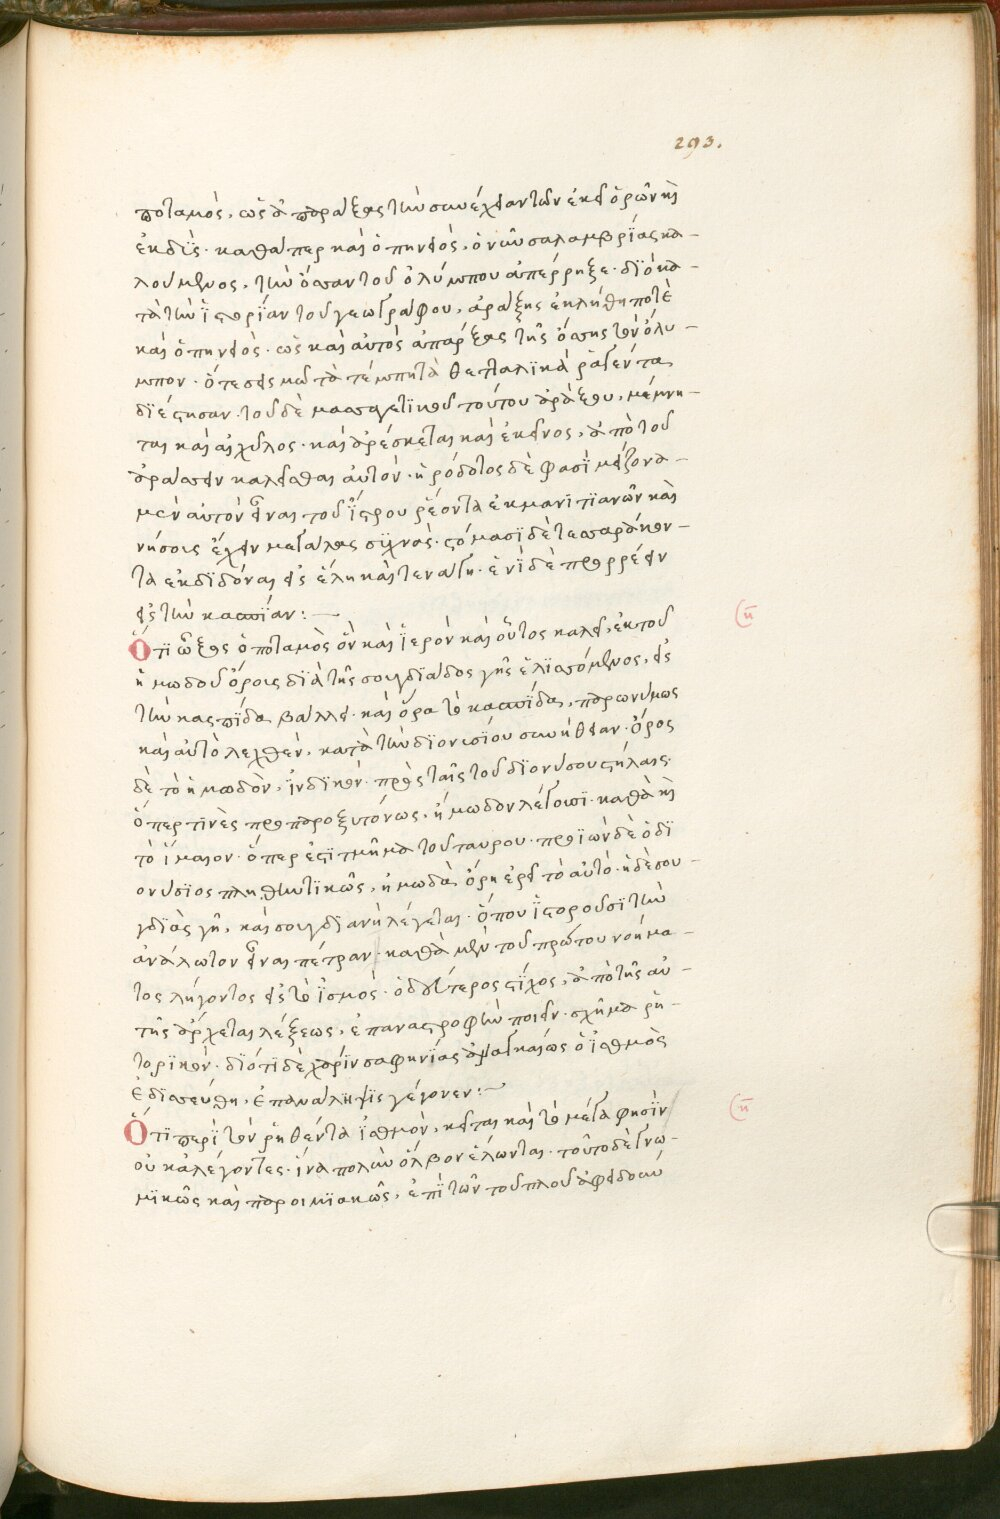 293.
ποταμὸς, ὡς ἀπαράξας τὴν συνέχειαν τῶν ἐκεῖ ὀρῶν κὶ
ἐκδύς. καθάπερ καὶ ὁ πηνειὸς, ὁ νῦν σαλαμβρίας κα-
λούμενος, τὴν ὄσσαν τοῦ ὀλύμπου ἀπέρρηξε. διὸ κα-
τὰ τὴν ἱστορίαν τοῦ γεωγράφου, ἀράξης ἐκλήθη ποτὲ
καὶ ὁ πηνειὸς. ὡς καὶ αὐτὸς ἀπαράξας τῆς ὄσσης τὸν ὄλυ-
μπον. ὅτε σεισμῶ τὰ τέμπη τὰ θετταλικὰ ῥαγέντα
διέστησαν. τοῦ δὲ μασσαγετικοῦ τούτου ἀράξου, μέμνη-
ται καὶ αἰσχύλος. καὶ ἀρέσκεται καὶ ἐκεῖνος, ἀπὸ τοῦ
ἀράσσειν καλεῖσθαι αὐτόν. ἡρόδοτος δὲ φασὶ μείζονα
μὲν αὐτὸν εἶναι τοῦ ἴστρου ῥέοντα ἐκ μαντιανῶν καὶ
νήσους ἔχειν μεγάλας συχνάς. στόμασι δὲ τεσσαράκον-
τα ἐκδιδόναι εἰς ἕλη καὶ τενάγη. ἑνὶ δὲ προρρέειν
εἰς τὴν κασπίαν:
(π̄
Ὅτι ὦξος ὁ ποταμὸς ὃν καὶ ἱερὸν καὶ οὗτος καλεῖ, ἐκ τοῦ
ἠμωδοῦ ὄρους διὰ τῆς σουγδιάδος γῆς ἑλισσόμενος, εἰς
τὴν κασπίδα βάλλει. καὶ ὅρα τὸ κασπίδα, παρωνύμως
καὶ αὐτὸ λεχθὲν, κατὰ τὴν διονυσίου συνήθειαν. ὄρος
δὲ τὸ ἠμωδὸν, ἰνδικὸν. πρὸς ταῖς τοῦ διονύσου στήλαις.
ὅπερ τινὲς προπαροξυτόνως, ἤμωδον λέγουσι. καθὰ κὶ
τὸ ἴμαιον. ὅπερ ἐστὶ τμῆμα τοῦ ταύρου. προϊὼν δὲ ὁ δι
ονύσιος πληθυντικῶς, ἠμωδὰ ὄρη ἐρεῖ τὸ αὐτὸ. ἡ δὲ σου-
γδιὰς γῆ, καὶ σουγδιανὴ λέγεται. ὅπου ἱστοροῦσι τὴν
ἀνάλωτον εἶναι πέτραν. καθὰ μὲν τοῦ πρώτου νοήμα-
τος λήγοντος εἰς τὸ ἰσμὸς. ὁ δεύτερος στίχος, ἀπὸ τῆς αὐ-
τῆς ἄρχεται λέξεως, ἐπαναστροφὴν ποιεῖν. σχῆμα ῥη-
τορικὸν. διότι δὲ χάριν σαφηνίας ἀναγκαίως ὁ ἰσθμὸς
ἐδισσεύθη, ἐπανάληψις γέγονεν:
(π̄
Ὅτι περὶ τὸν ῥηθέντα ἰσθμὸν, κεῖται καὶ τὸ μέγα φησὶν
οὐκ ἀλέγοντες. ἵνα πολὺν ὄλβον ἕλωνται. τοῦτο δὲ γνω-
μικῶς καὶ παροιμιακῶς, ἐπὶ τῶν τοῦ πλοῦ ἀφειδούν